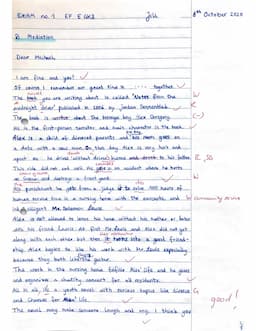 EXAM no. 1 EF E GK2 Jill 8th October 2020
B. Mediation
Dear Michael,
I am fine and you?
Of course I remember our great time in together
The book you are writing about is called 'Notes from the
midnight driver' published in 2006 by Jordan Sonnenblick
The book is written about the teenage boy Alex Gregory.
He is the first-person narrator and main character in the book.
Alex is a child of divorced parents and his mom goes on
a date with a new man. On this day Alex is very hurt and
upset so he drives without drivers license and drunk to his father.
This ride did not end well. He gets in an accident where he tears
and destroys a front yard.
His punishment he gets from a judge is to 100 hours of
human service time in a nursing home with the sarcastic and
Mr. Solomon Lewis.
Alex is not allowed to leave his home without his mother or
see his friend Laurie. At first Mr. Lewis and Alex did not get
along with each other but then it turns into a great friend-
ship. Alex begins to like his work with Mr. Lewis especially
because they both like the guitar.
This work in the nursing home fulfils Alex' life and he goes
and organizes a charity concert for all residents.
All in all, it's a youth novel with serious topics like divorce
and chances for Alex' life.
The novel may make someone laugh and cry. I think you
W
R
(-)
R, SS
W
W community service
G
good!